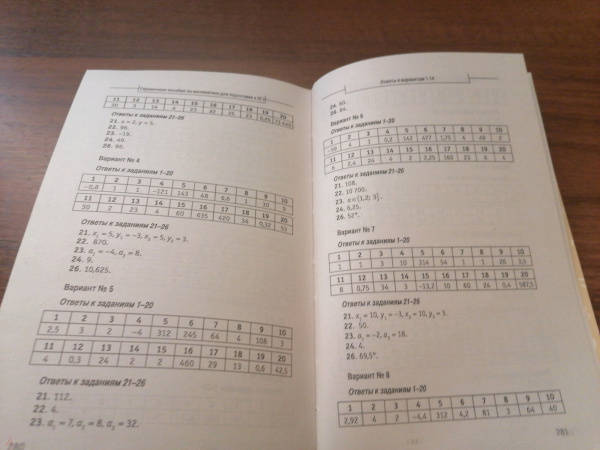 Справочное пособие по математике для подготовки к
11 12 13 14 15 16 17 18 19 20
30 3 14 4 23
Ответы к заданиям 21–26
21. x = 2, y = 5.
22. 96.
23. −19.
24. 49.
26. 90.
Вариант № 4
Ответы к заданиям 1–20
1 2 3 4 5 6 7 8 9 10
−0,8 3 1 −121 143 48 6,6 1 10 5
11 12 13 14 15 16 17 18 19 20
50 2 23 4 60 635 420 34 0,32 53
Ответы к заданиям 21–26
21. x₁ = 5, y₁ = −3, x₂ = 5, y₂ = 3.
22. 870.
23. a₁ = −4, a₂ = 8.
24. 9.
26. 10,625.
Вариант № 5
Ответы к заданиям 1–20
1 2 3 4 5 6 7 8 9 10
2,5 3 2 −4 312 245 64 4 108 3
11 12 13 14 15 16 17 18 19 20
4 0,3 24 2 2 460 29 13 0,6 42,5
Ответы к заданиям 21–26
21. 112.
22. 4.
23. a₁ = 7, a₂ = 8, a₃ = 32.
280
Ответы к вариантам 1–14
24. 60.
26. 84.
Вариант № 6
Ответы к заданиям 1–20
1 2 3 4 5 6 7 8 9 10
−59 4 3 0,2 142 477 1,25 4 48 2
11 12 13 14 15 16 17 18 19 20
6 2,4 24 4 2 2,25 160 23 6 4
Ответы к заданиям 21–26
21. 108.
22. 10 700.
23.
24. 6,25.
26. 52°.
Вариант № 7
Ответы к заданиям 1–20
1 2 3 4 5 6 7 8 9 10
1 1 3 10 314 54 1 1 26 3,5
11 12 13 14 15 16 17 18 19 20
8 0,75 34 3 −13,2 10 60 24 0,4 587,5
Ответы к заданиям 21–26
21. x₁ = 10, y₁ = −3, x₂ = 10, y₂ = 3.
22. 50.
23. a₁ = −2, a₂ = 18.
24. 4.
26. 69,5°.
Вариант № 8
Ответы к заданиям 1–20
1 2 3 4 5 6 7 8 9 10
2,92 4 2 −4,4 312 4,2 81 3 64 40
281